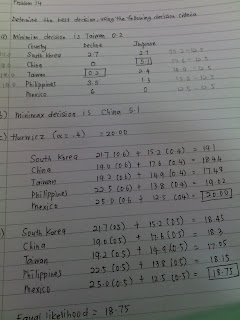 Problem 14
Determine the best decision, using the following decision criteria
Minimin decision is Taiwan 0.2
Country Decline Improve
South Korea 2.7
China 0 5.1
Taiwan 0.2 2.4
Philippines 3.5 1.3
Mexico 6 0
Minimax decision is China 5.1
Hurwicz (α = .4) = 20.00
South Korea 21.7 (0.6) + 15.2 (0.4) = 19.1
China 19.0 (0.6) + 17.6 (0.4) = 18.44
Taiwan 19.2 (0.6) + 14.9 (0.4) = 17.48
Philippines 22.5 (0.6) + 13.8 (0.4) = 19.02
Mexico 25.0 (0.6) + 12.5 (0.4) = 20.00
South Korea 21.7 (0.5) + 15.2 (0.5) = 18.45
China 19.0 (0.5) + 17.6 (0.5) = 18.3
Taiwan 19.2 (0.5) + 14.9 (0.5) = 17.05
Philippines 22.5 (0.5) + 13.8 (0.5) = 18.15
Mexico 25.0 (0.5) + 12.5 (0.5) = 18.75
Equal likelihood = 18.75